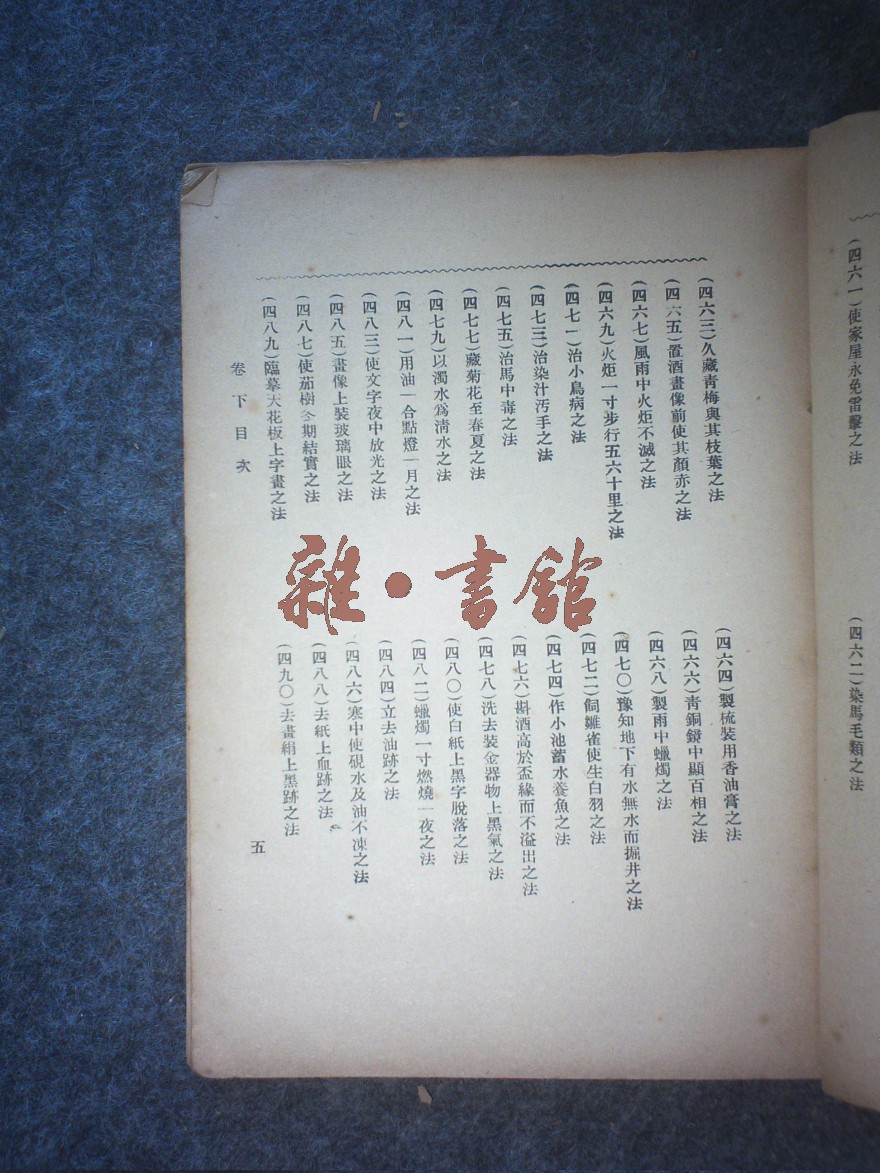 (四六一)使家屋永免雷擊之法
(四六二)染馬毛類之法
(四六三)久藏靑梅與其枝葉之法
(四六四)製梳裝用香油膏之法
(四六五)置酒畫像前使其顏赤之法
(四六六)靑銅鏡中顯百相之法
(四六七)風雨中火炬不滅之法
(四六八)製雨中蠟燭之法
(四六九)火炬一寸步行五六十里之法
(四七〇)豫知地下有水無水而掘井之法
(四七一)治小鳥病之法
(四七二)飼雛雀使生白羽之法
(四七三)治染汁汚手之法
(四七四)作小池蓄水養魚之法
(四七五)治馬中毒之法
(四七六)斟酒高於盃緣而不溢出之法
(四七七)藏菊花至春夏之法
(四七八)洗去裝金器物上黑氣之法
(四七九)以濁水爲淸水之法
(四八〇)使白紙上黑字脫落之法
(四八一)用油一合點燈一月之法
(四八二)蠟燭一寸燃燒一夜之法
(四八三)使文字夜中放光之法
(四八四)立去油跡之法
(四八五)畫像上裝玻璃眼之法
(四八六)寒中使硯水及油不凍之法
(四八七)使茄樹冬期結實之法
(四八八)去紙上血跡之法
(四八九)臨摹天花板上字畫之法
(四九〇)去畫絹上墨跡之法
卷下目次
五
雜·書館